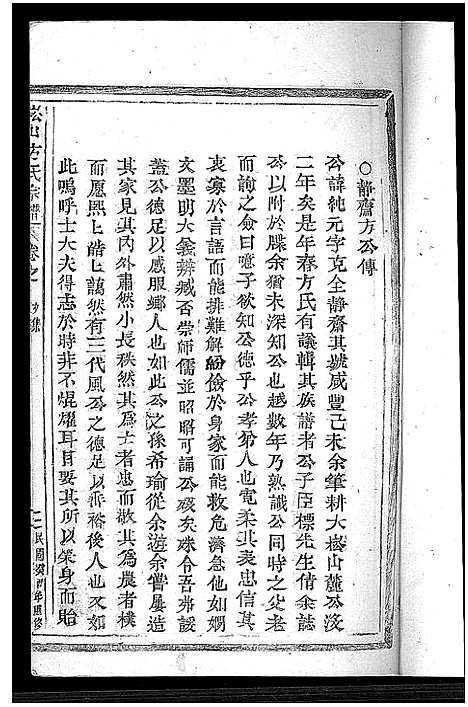 ○靜齋方公傳
公諱純元字克全靜齋其號咸豐己未余筆耕大崧山麓公沒
二年矣是年春方氏有議輯其族譜者公子臣標先生倩余誌
公以附於牒余猶未深知公也越數年乃熟識公同時之父老
而詢之僉曰噫子欲知公德乎公孝弟人也寬柔其表忠信其
衷察於言語而能排難解紛儉於身家而能救危濟急他如嫻
文墨明大義辨臧否崇師儒並昭昭可誦公殁矣殊令吾弗諼
蓋公德足以感服鄉人也如此公之孫希瑜從余遊余嘗屢造
其家見其內外肅然小長秩然其為士者忠而敬其為農者樸
而愿熙熙皞皞藹然有三代風公之德足以垂裕後人也又如
此嗚呼士大夫得志於時非不焜燿耳目要其所以榮身而貽
崧山方氏宗譜 卷之
民國癸酉年重修